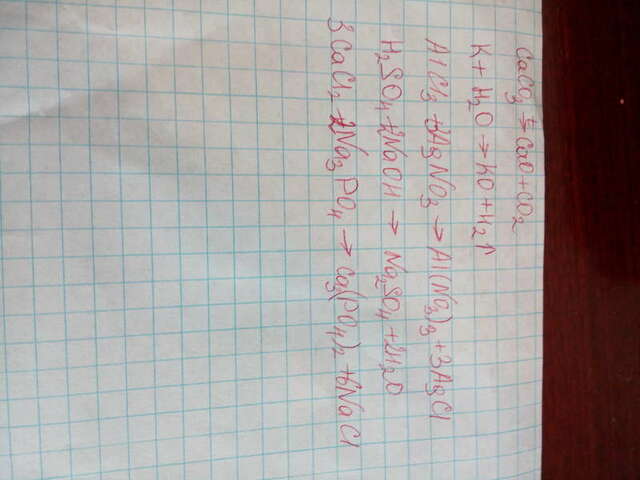 CaCO₃ →ᵗ CaO + CO₂
K + H₂O → KO + H₂↑
AlCl₃ + 3AgNO₃ → Al(NO₃)₃ + 3AgCl
H₂SO₄ + 2NaOH → Na₂SO₄ + 2H₂O
3CaCl₂ + 2Na₃PO₄ → Ca₃(PO₄)₂ + 6NaCl